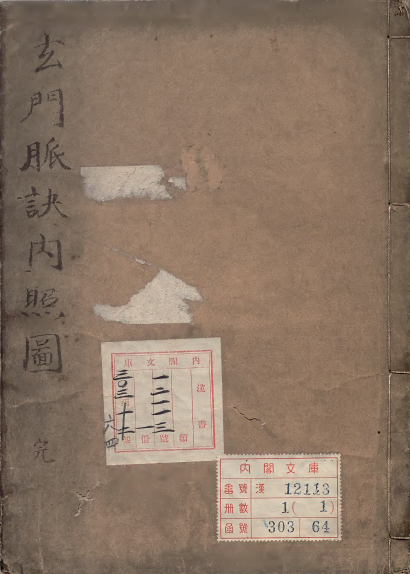 玄門脈訣内照圖
完
内閣文庫
漢書
一二一一三
三〇三
六四
内閣文庫
番號 漢 12113
冊數 1( 1)
函號 303 64